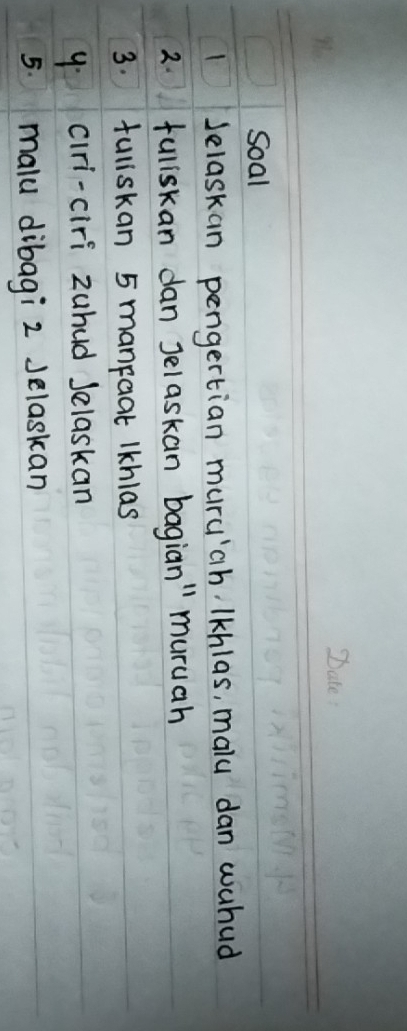 Date:
Soal
1 Jelaskan pengertian muru'ah, Ikhlas, malu dan wuhud
2. tuliskan dan Jelaskan bagian" muruah
3. tuliskan 5 manfaat Ikhlas
4. ciri-ciri zuhud Jelaskan
5. malu dibagi 2 Jelaskan